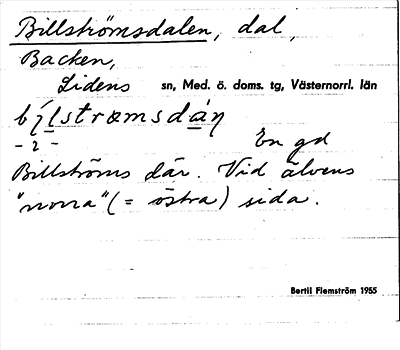 Billströmsdalen, dal,
Backen,
Lidens sn, Med. ö. doms. tg, Västernorrl. län
bílstrœmsdáɳ
- 2 - En gd
Billströms där. Vid älvens
"norra" (= östra) sida.
Bertil Flemström 1955